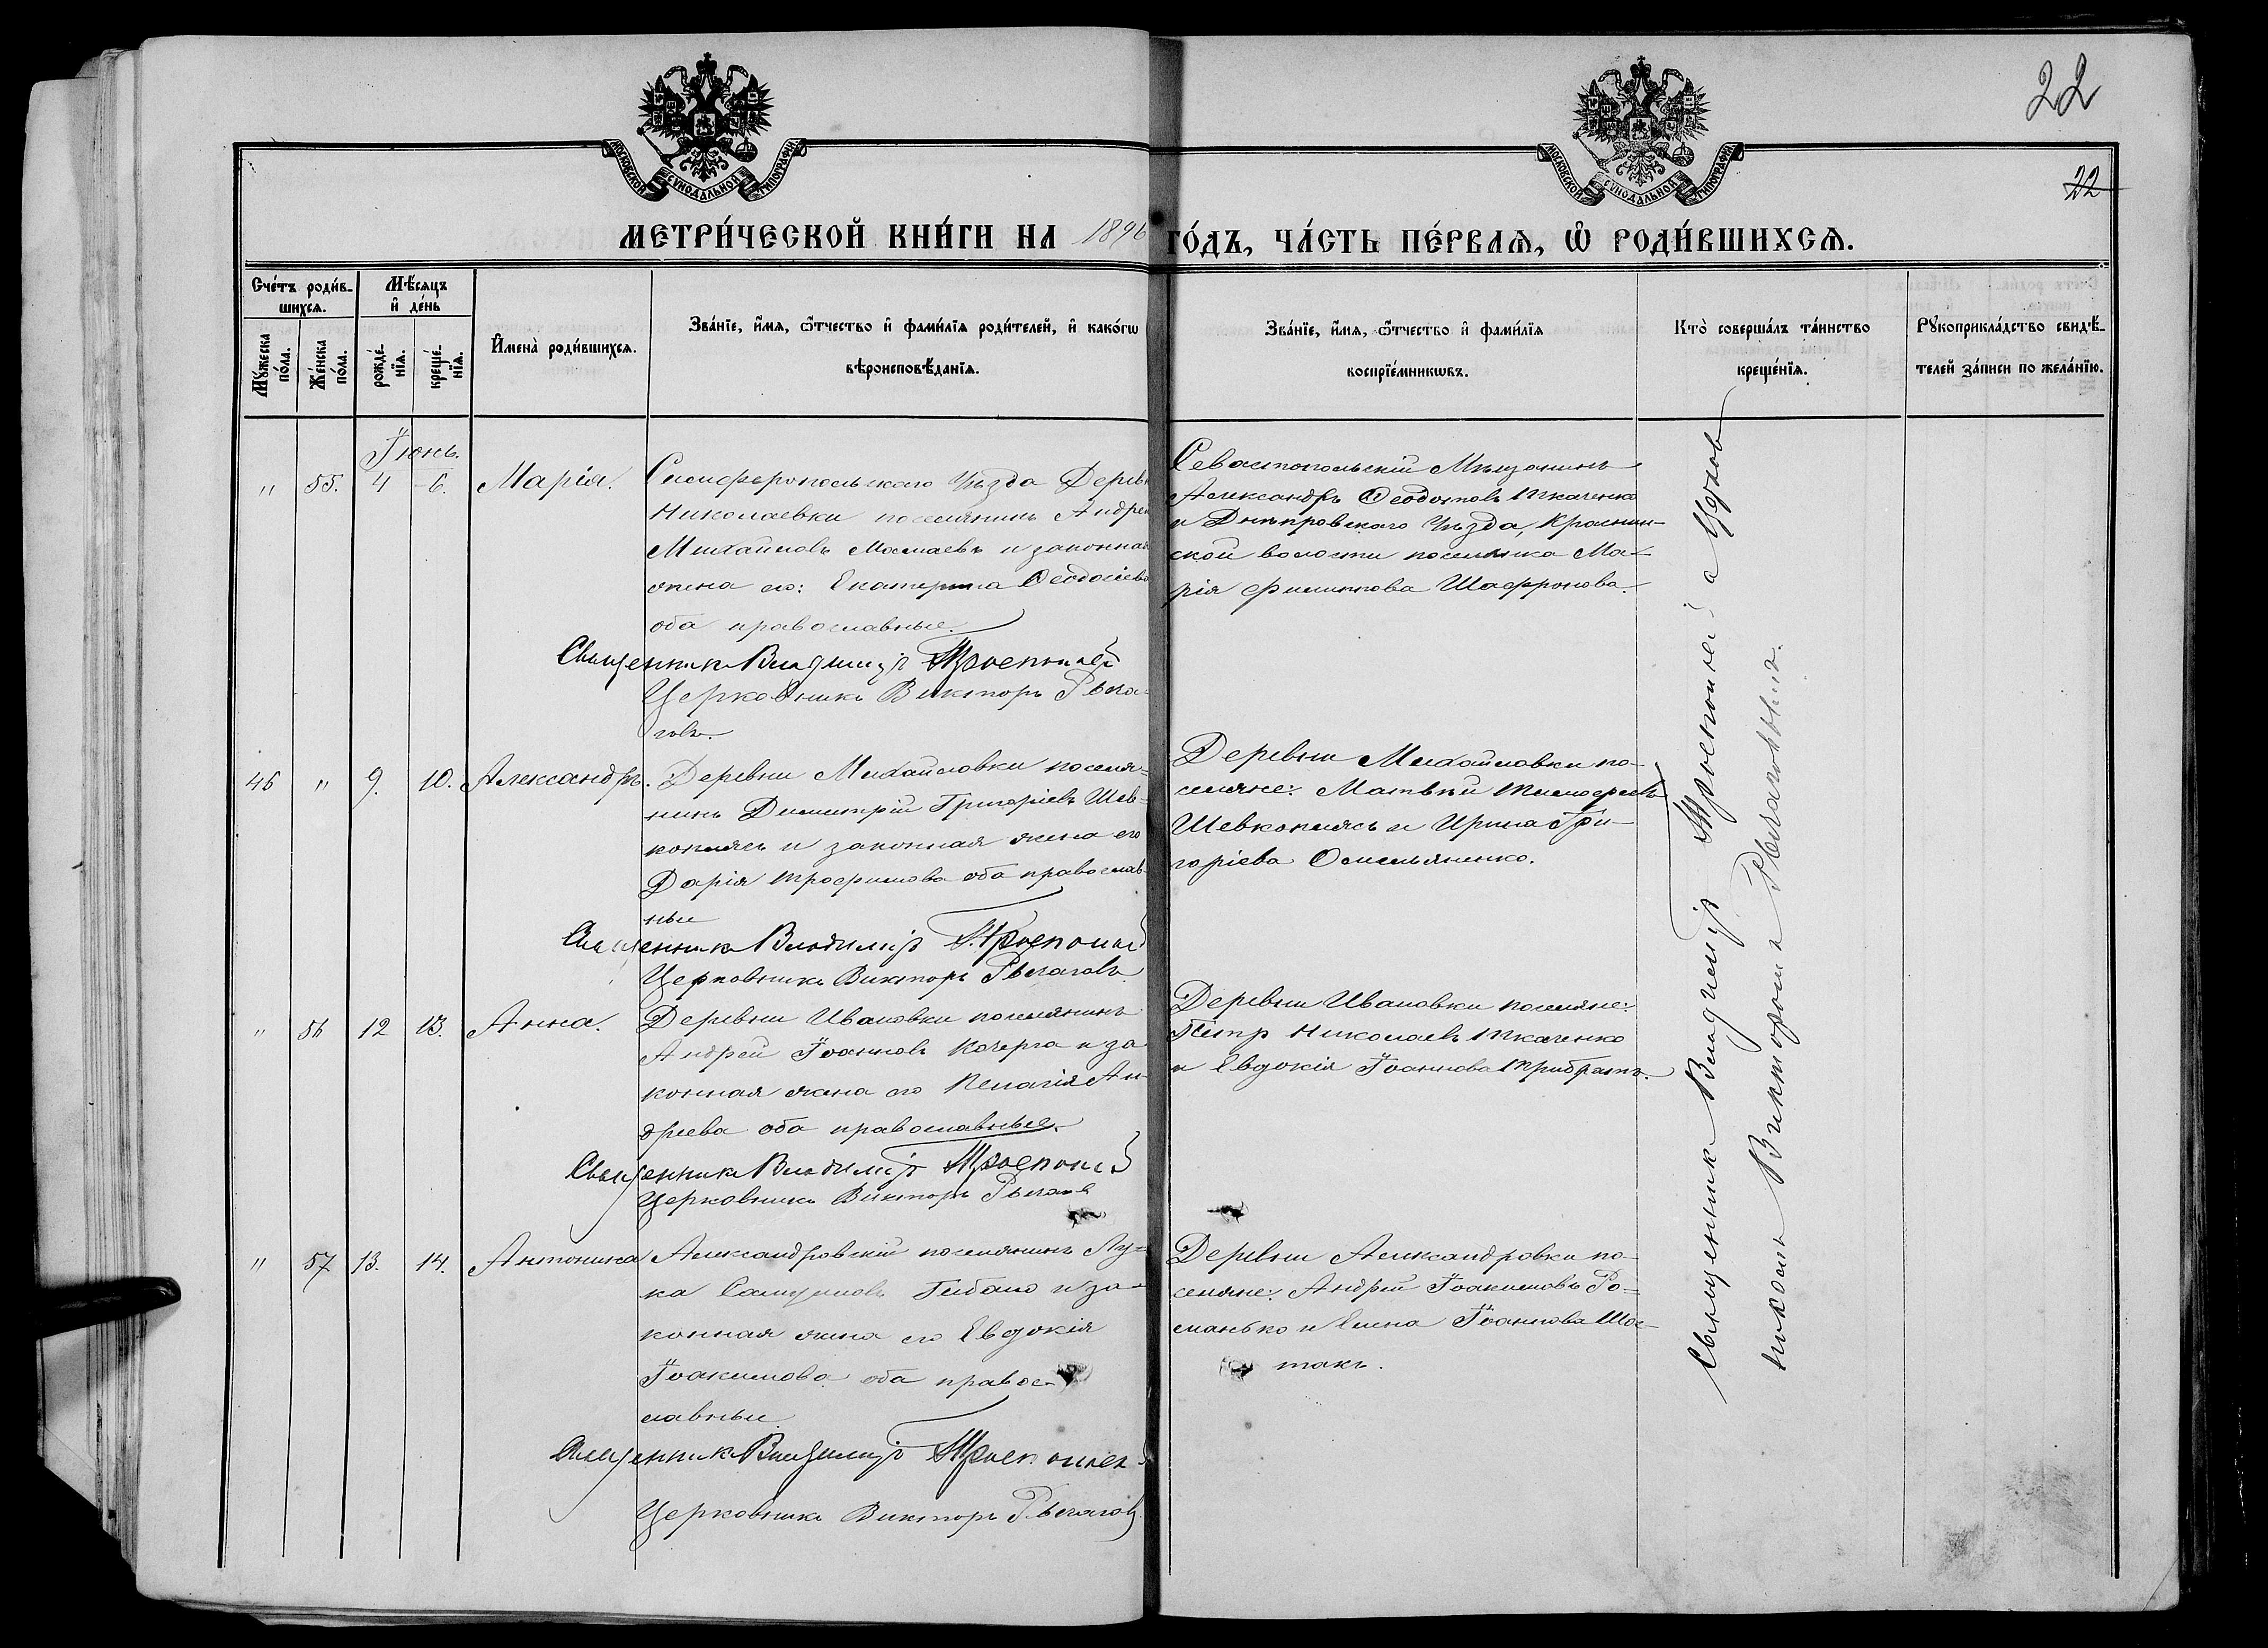 22
22
МОСКОВСКОЙ СѴНОДАЛЬНОЙ ТИПОГРАФІИ
МОСКОВСКОЙ СѴНОДАЛЬНОЙ ТИПОГРАФІИ
МЕТРИ́ЧЕСКОЙ КНИ́ГИ НА 1896 ГО́ДЪ, ЧА́СТЬ ПЕ́РВАѦ, Ѽ РОДИ́ВШИХСѦ.
Сче́тъ роди́в-
шихсѧ.
Мꙋ́жеска по́ла.
Же́нска по́ла.
Мѣ́сѧцъ
и҆ де́нь
рожде́-
нїѧ.
креще́-
нїѧ.
И҆мена̀ роди́вшихсѧ.
Зва́нїе, и҆́мѧ, ѻ҆́тчество и҆ фами́лїѧ роди́телей, и҆ како́гѡ
вѣроисповѣ́данїѧ.
Зва́нїе, и҆́мѧ, ѻ҆́тчество и҆ фами́лїѧ
воспрїе́мникѡвъ.
Кто̀ соверша́лъ та́инство
креще́нїѧ.
Рꙋкоприкла́дство свидѣ́-
телей за́писи по жела́нїю.
Іюнь.
" 55. 4 6. Марія.
Симферопольскаго Уѣзда Деревни
Николаевки поселянинъ Андрей
Михайловъ Маслаевъ и законная
жена его: Екатерина Ѳеодосіева
оба православные.
Священникъ Владиміръ Троепольскій
Церковникъ Викторъ Рыча-
говъ.
Севастопольскій Мѣщанинъ
Александръ Ѳеодотовъ Ткаченко
и Днѣпровскаго Уѣзда,
ской волости поселянка Ма-
рія Филиппова Шафронова.
46 " 9. 10. Александръ.
Деревни Михайловки поселя-
нинъ Димитрій Григоріевъ Шев-
коплясъ и законная жена его
Дарія Трофимова оба православ-
ные
Священникъ Владиміръ Троепольскій
Церковникъ Викторъ Рычаговъ
Деревни Михайловки по-
селяне: Матвѣй Тимофеевъ
Шевкоплясъ и Ирина Гри-
горіева Омельяненко.
" 56 12 13. Анна.
Деревни Ивановки поселянинъ
Андрей Іоанновъ Кочерга и за-
конная жена его Пелагія Ан-
дреева оба православные.
Священникъ Владиміръ Троепольскій
Церковникъ Викторъ Рычаговъ
Деревни Ивановки поселяне:
Петръ Николаевъ Ткаченко
и Евдокія Іоаннова
" 57 13. 14. Антонина
Александровскій поселянинъ Лу-
ка и за-
конная жена его Евдокія
Іоакимова оба правос-
лавные.
Священникъ Владиміръ Троепольскій
Церковникъ Викторъ Рычаговъ
Деревни Александровки по-
селяне: Андрей Іоакимовъ Ро-
манько и Елена Іоаннова Шос-
такъ.
Священникъ Владиміръ Троепольскій съ Церков-
никомъ Викторомъ Рычаговымъ.